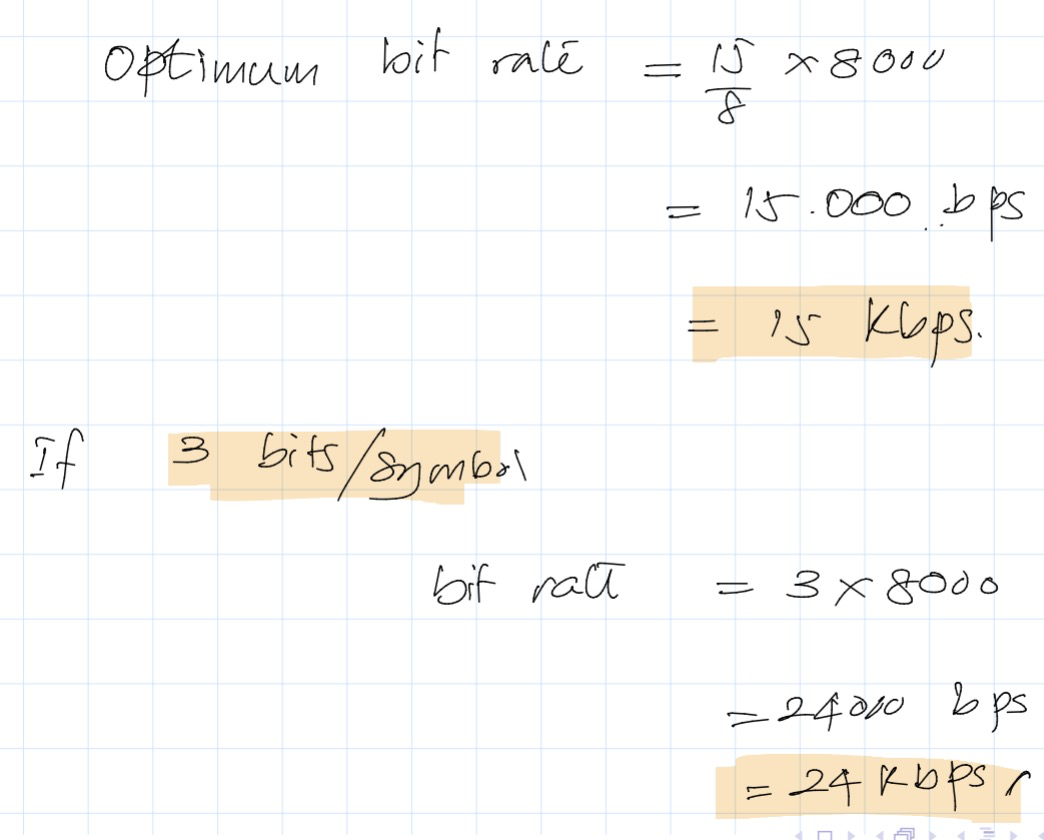 Optimum bit rate = 15/8 × 8000
= 15.000 bps
= 15 Kbps.
If 3 bits/symbol
bit rate = 3 × 8000
= 24000 bps
= 24 Kbps